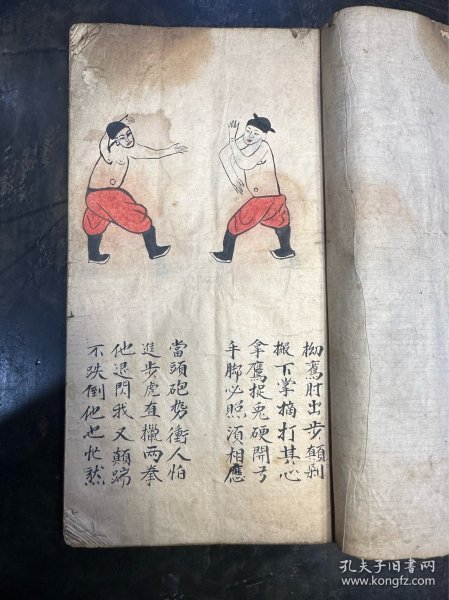 拗鸾肘出步顛剁
搬下掌摘打其心
拿鷹捉兎硬開弓
手脚必照須相應
當頭砲势衝人怕
進步虎直攛两拳
他退閃我又顛踹
不跌倒他也忙然
孔夫子旧书网
www.kongfz.com